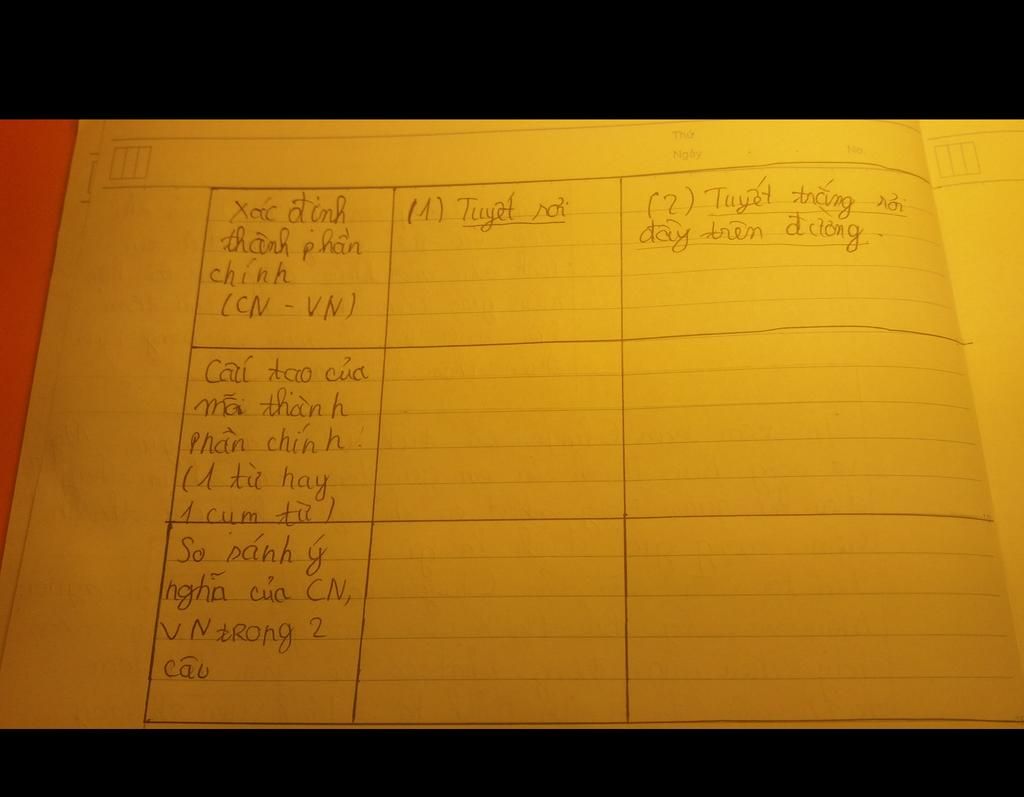 Thứ
Ngày No.
Xác định
thành phần
chính
(CN - VN)
(1) Tuyết rơi
(2) Tuyết trắng rơi
đầy trên đường.
Cấu tạo của
mỗi thành
phần chính.
(1 từ hay
1 cụm từ)
So sánh ý
nghĩa của CN,
VN trong 2
câu